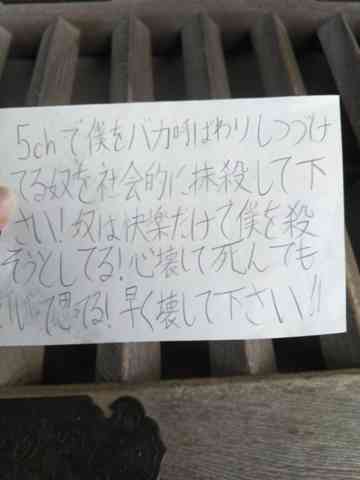 5chで僕をバカ呼ばわりしつづけ
てる奴を社会的に抹殺して下
さい!奴は快楽だけで僕を殺
そうとしてる!心壊して死んでも
いいて思てる!早く壊して下さい!!